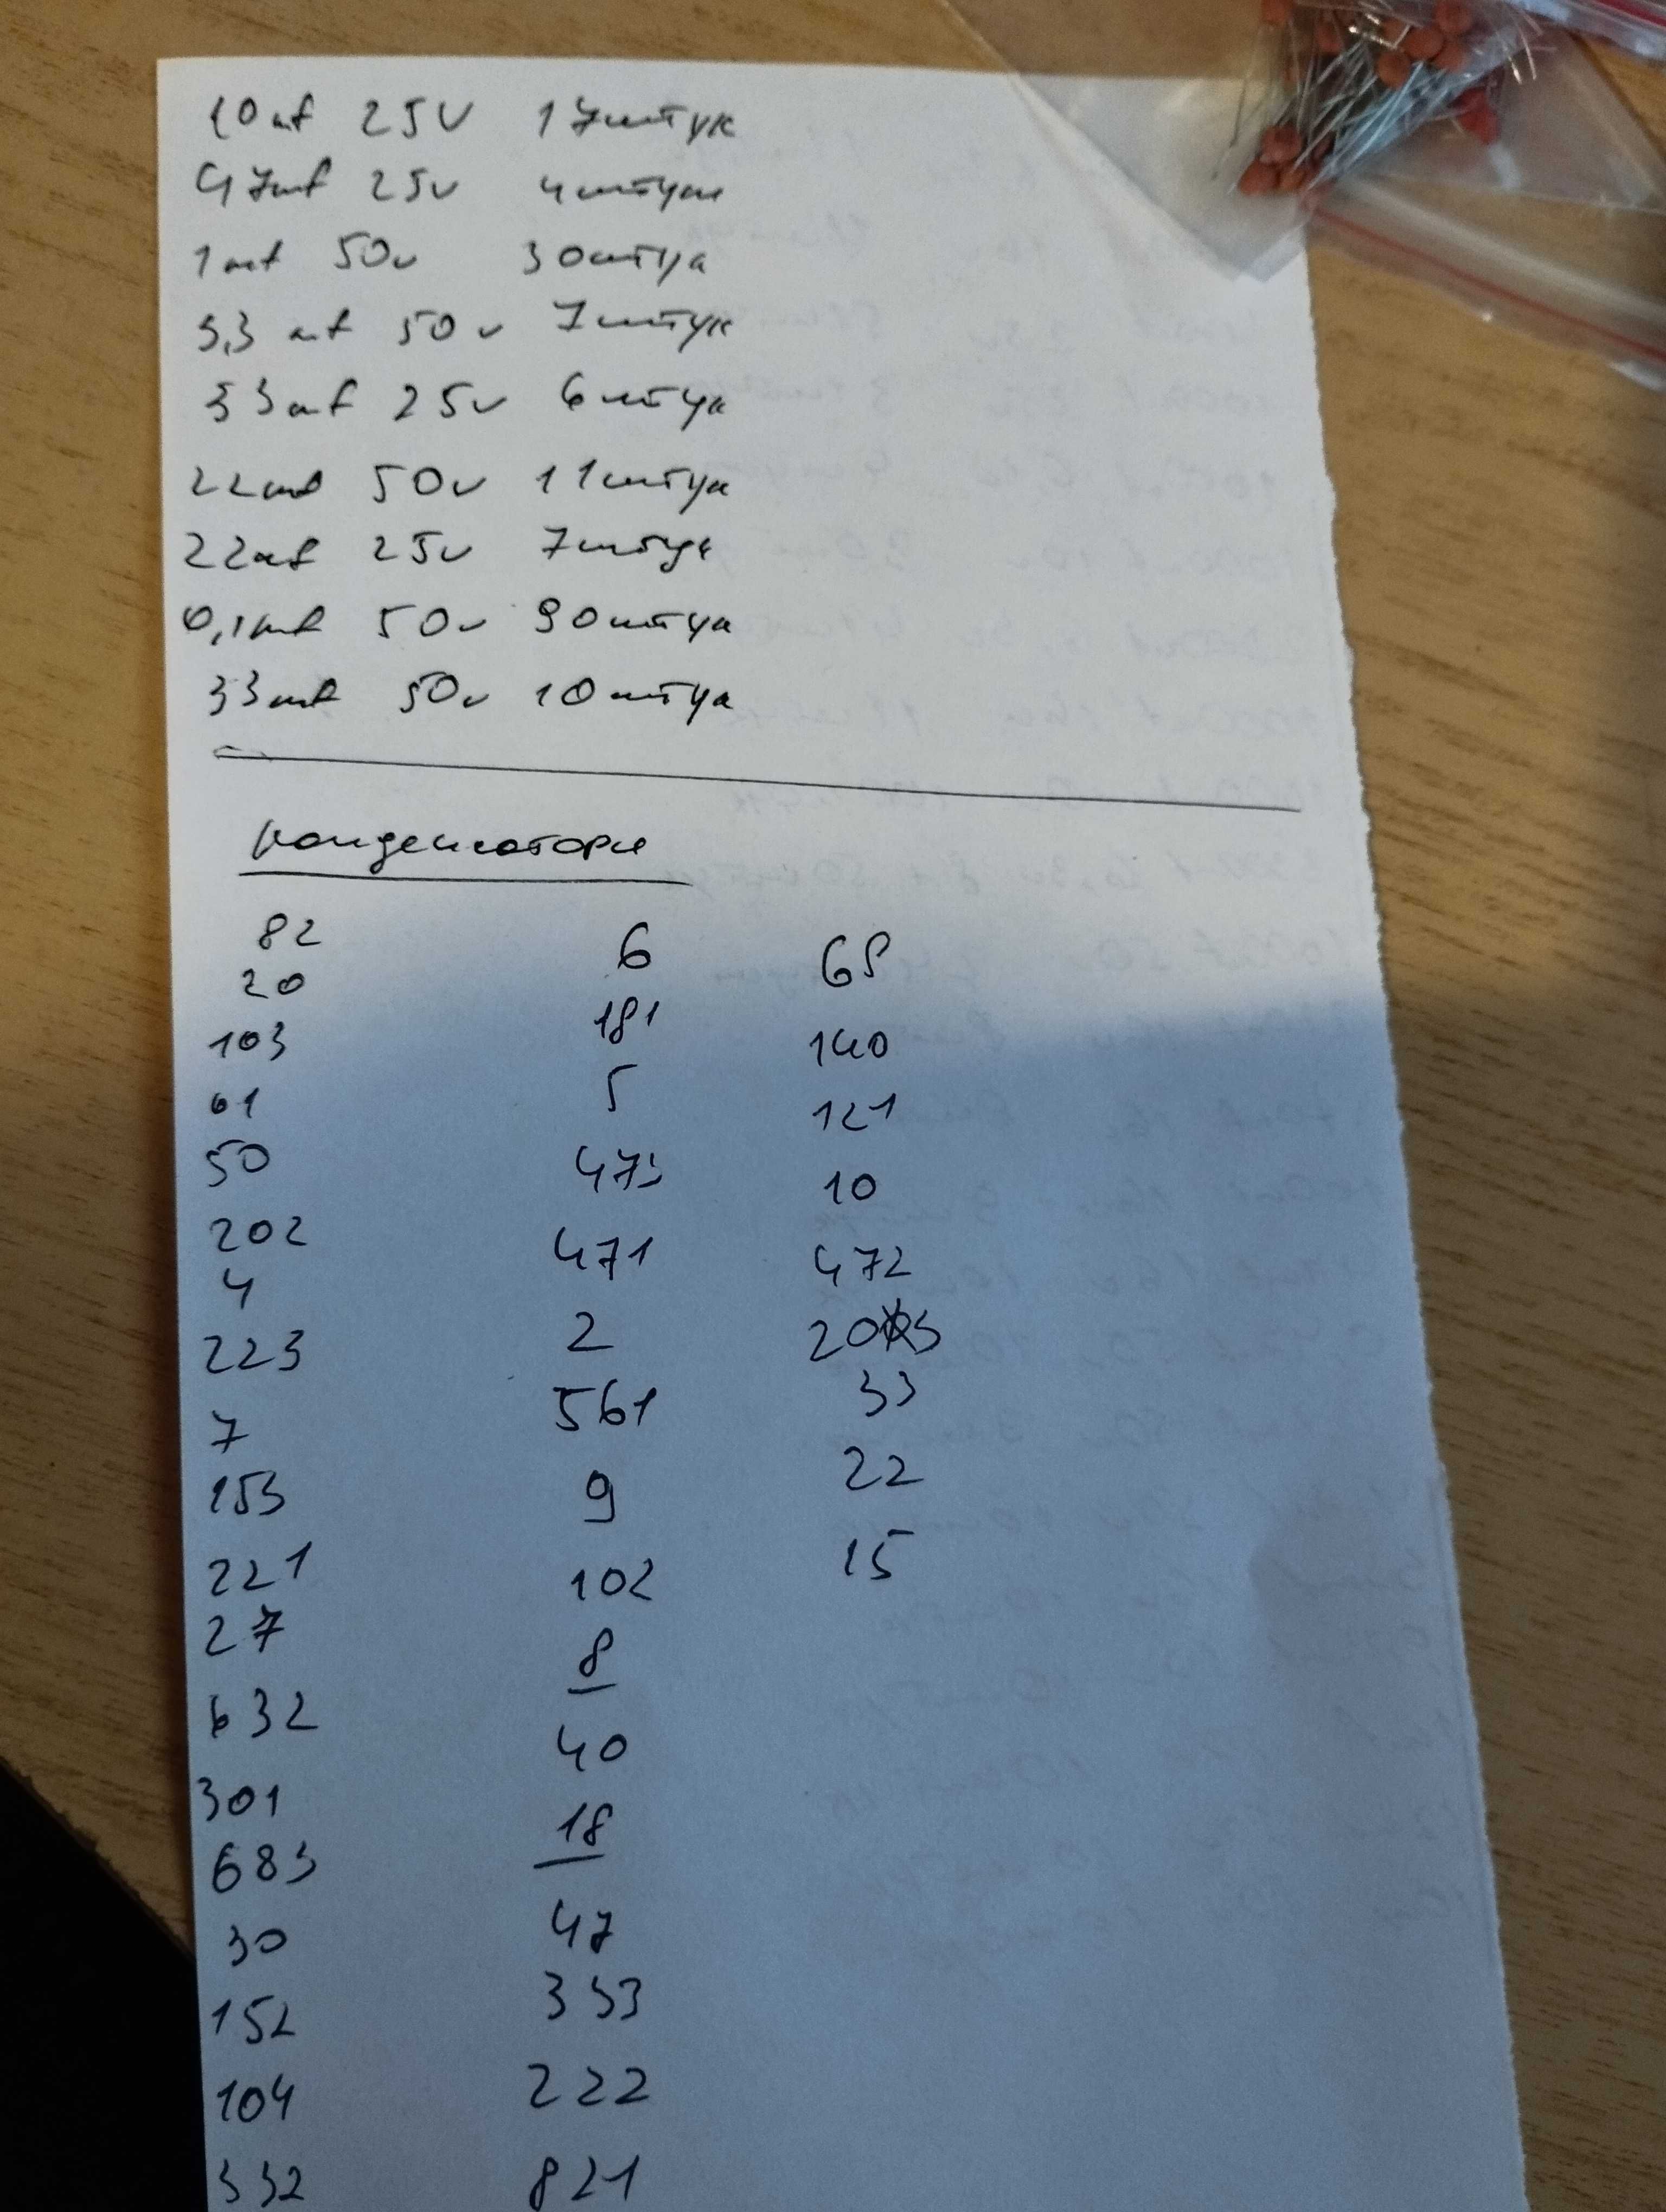 10mf 25V 17штук
47mf 25v 4штуки
1mf 50v 30штук
3,3 mf 50v 7штук
33mf 25v 6штук
22mf 50v 11штук
22mf 25v 7штук
0,1mf 50v 90штук
33mf 50v 10штук
конденсатори
82
20
103
61
50
202
4
223
7
153
221
27
632
301
683
30
152
104
332
6
181
5
473
471
2
561
9
102
8
40
18
47
333
222
821
68
140
121
10
472
203
33
22
15